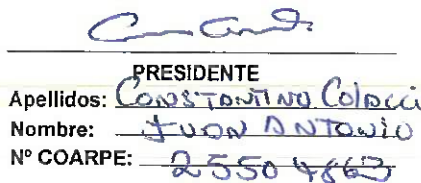 PRESIDENTE
Apellidos: CONSTANTINO Colacci
Nombre: JUAN ANTONIO
Nº COARPE: 25504863